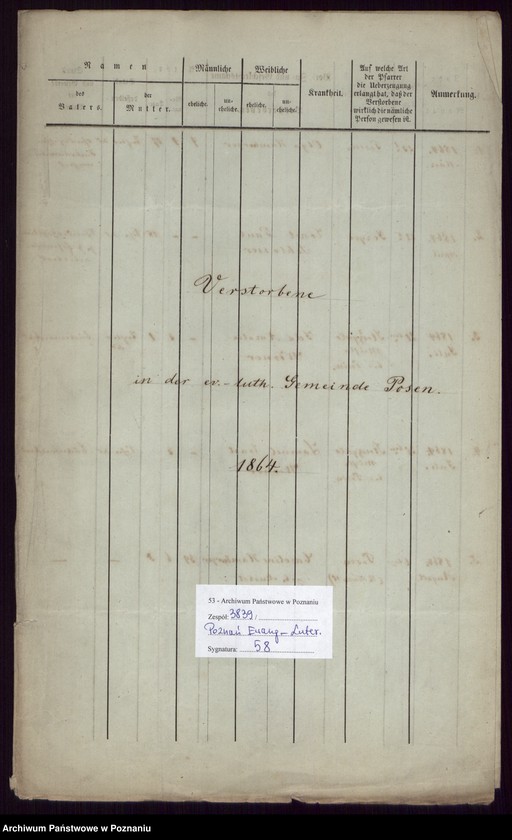 Namen
des Vaters.
der Mutter.
Männliche
eheliche.
un-
eheliche.
Weibliche
eheliche.
un-
eheliche.
Krankheit.
Auf welche Art
der Pfarrer
die Ueberzeugung
erlangt hat, daß der
Verstorbene
wirklich die nämliche
Person gewesen ist.
Anmerkung.
Verstorbene
in der ev.-luth. Gemeinde Posen.
1864.
53 - Archiwum Państwowe w Poznaniu
Zespół: 3839/
Poznań Ewang-Luter.
Sygnatura: 58
Archiwum Państwowe w Poznaniu